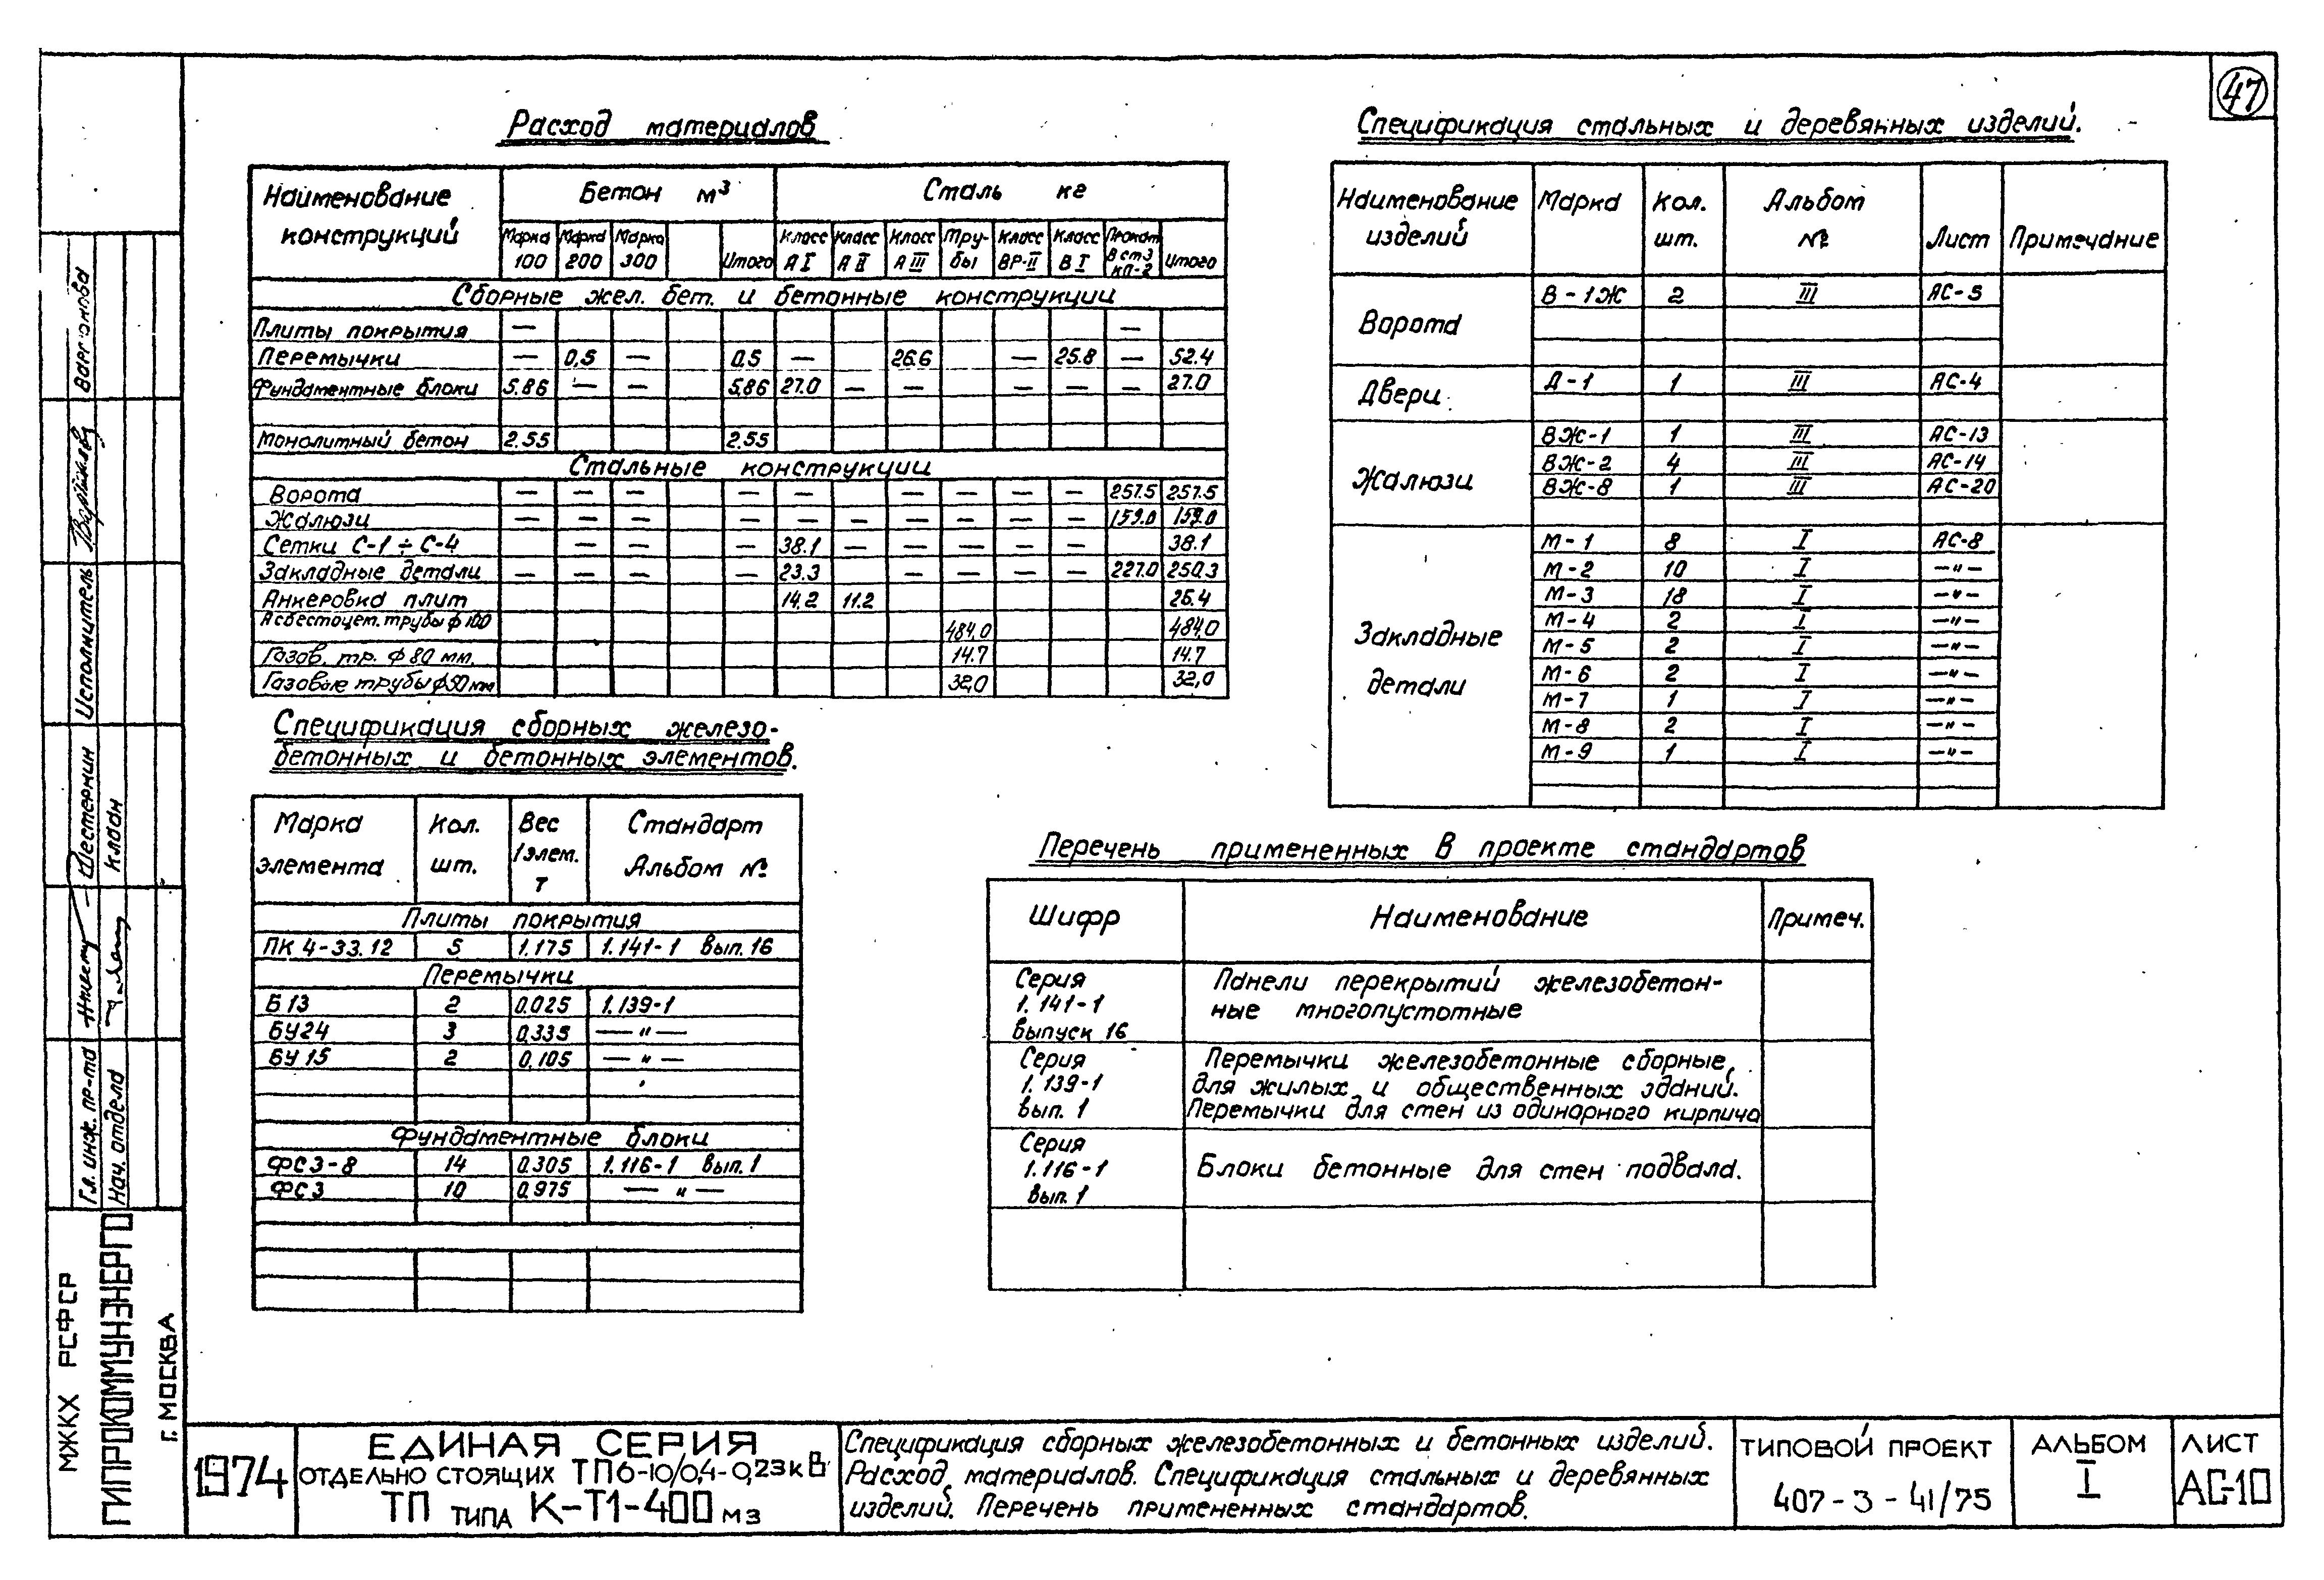 47
Расход материалов
Наименование конструкций | Бетон м³ | Сталь кг
Марка 100 | Марка 200 | Марка 300 | | Итого | Класс А I | Класс А II | Класс А III | Трубы | Класс ВР-II | Класс В I | Прокат В ст3 кп-2 | Итого
Сборные жел. бет. и бетонные конструкции
Плиты покрытия — —
Перемычки — 0,5 — 0.5 — 26.6 — 25.8 — 52.4
Фундаментные блоки 5.86 — — 5.86 27.0 — — — — — 27.0
Монолитный бетон 2.55 2.55
Стальные конструкции
Ворота — — — — — — — — — 257.5 257.5
Жалюзи — — — — — — — — — — 159.0 159.0
Сетки С-1 ÷ С-4 — — — 38.1 — — — — — 38.1
Закладные детали — — — — 23.3 — — — — 227.0 250.3
Анкеровка плит 14.2 11.2 25.4
Асбестоцет. трубы ф 100 484,0 484,0
Газов. тр. ф 80 мм. 14.7 14.7
Газовые трубы ф50 мм 32,0 32,0
Спецификация сборных железо-
бетонных и бетонных элементов.
Марка элемента | Кол. шт. | Вес 1 элем. т | Стандарт Альбом №
Плиты покрытия
ПК 4-33.12 5 1.175 1.141-1 Вып. 16
Перемычки
Б 13 2 0.025 1.139-1
БУ24 3 0.335 — " —
БУ 15 2 0.105 — " —
Фундаментные блоки
ФСЗ-8 14 0.305 1.116-1 Вып. 1
ФСЗ 10 0.975 — " —
Спецификация стальных и деревянных изделий.
Наименование изделий | Марка | Кол. шт. | Альбом № | Лист | Примечание
Ворота
В-1Ж 2 III АС-5
Двери
Д-1 1 III АС-4
Жалюзи
ВЖ-1 1 III АС-13
ВЖ-2 4 III АС-14
ВЖ-8 1 III АС-20
Закладные детали
М-1 8 I АС-8
М-2 10 I — " —
М-3 18 I — " —
М-4 2 I — " —
М-5 2 I — " —
М-6 2 I — " —
М-7 1 I — " —
М-8 2 I — " —
М-9 1 I — " —
Перечень примененных в проекте стандартов
Шифр | Наименование | Примеч.
Серия 1.141-1 выпуск 16
Панели перекрытий железобетон-
ные многопустотные
Серия 1.139-1 вып. 1
Перемычки железобетонные сборные,
для жилых и общественных зданий.
Перемычки для стен из одинарного кирпича
Серия 1.116-1 вып. 1
Блоки бетонные для стен подвала.
МЖКХ РСФСР
ГИПРОКОММУНЭНЕРГО
г. МОСКВА
Гл. инж. пр-та Шестернин
Нач. отдела Клаан
Исполнитель
1974
ЕДИНАЯ СЕРИЯ
ОТДЕЛЬНО СТОЯЩИХ ТП6-10/0,4-0,23кВ
ТП ТИПА К-Т1-400 МЗ
Спецификация сборных железобетонных и бетонных изделий.
Расход материалов. Спецификация стальных и деревянных
изделий. Перечень примененных стандартов.
ТИПОВОЙ ПРОЕКТ
407-3-41/75
АЛЬБОМ
I
ЛИСТ
АС-10